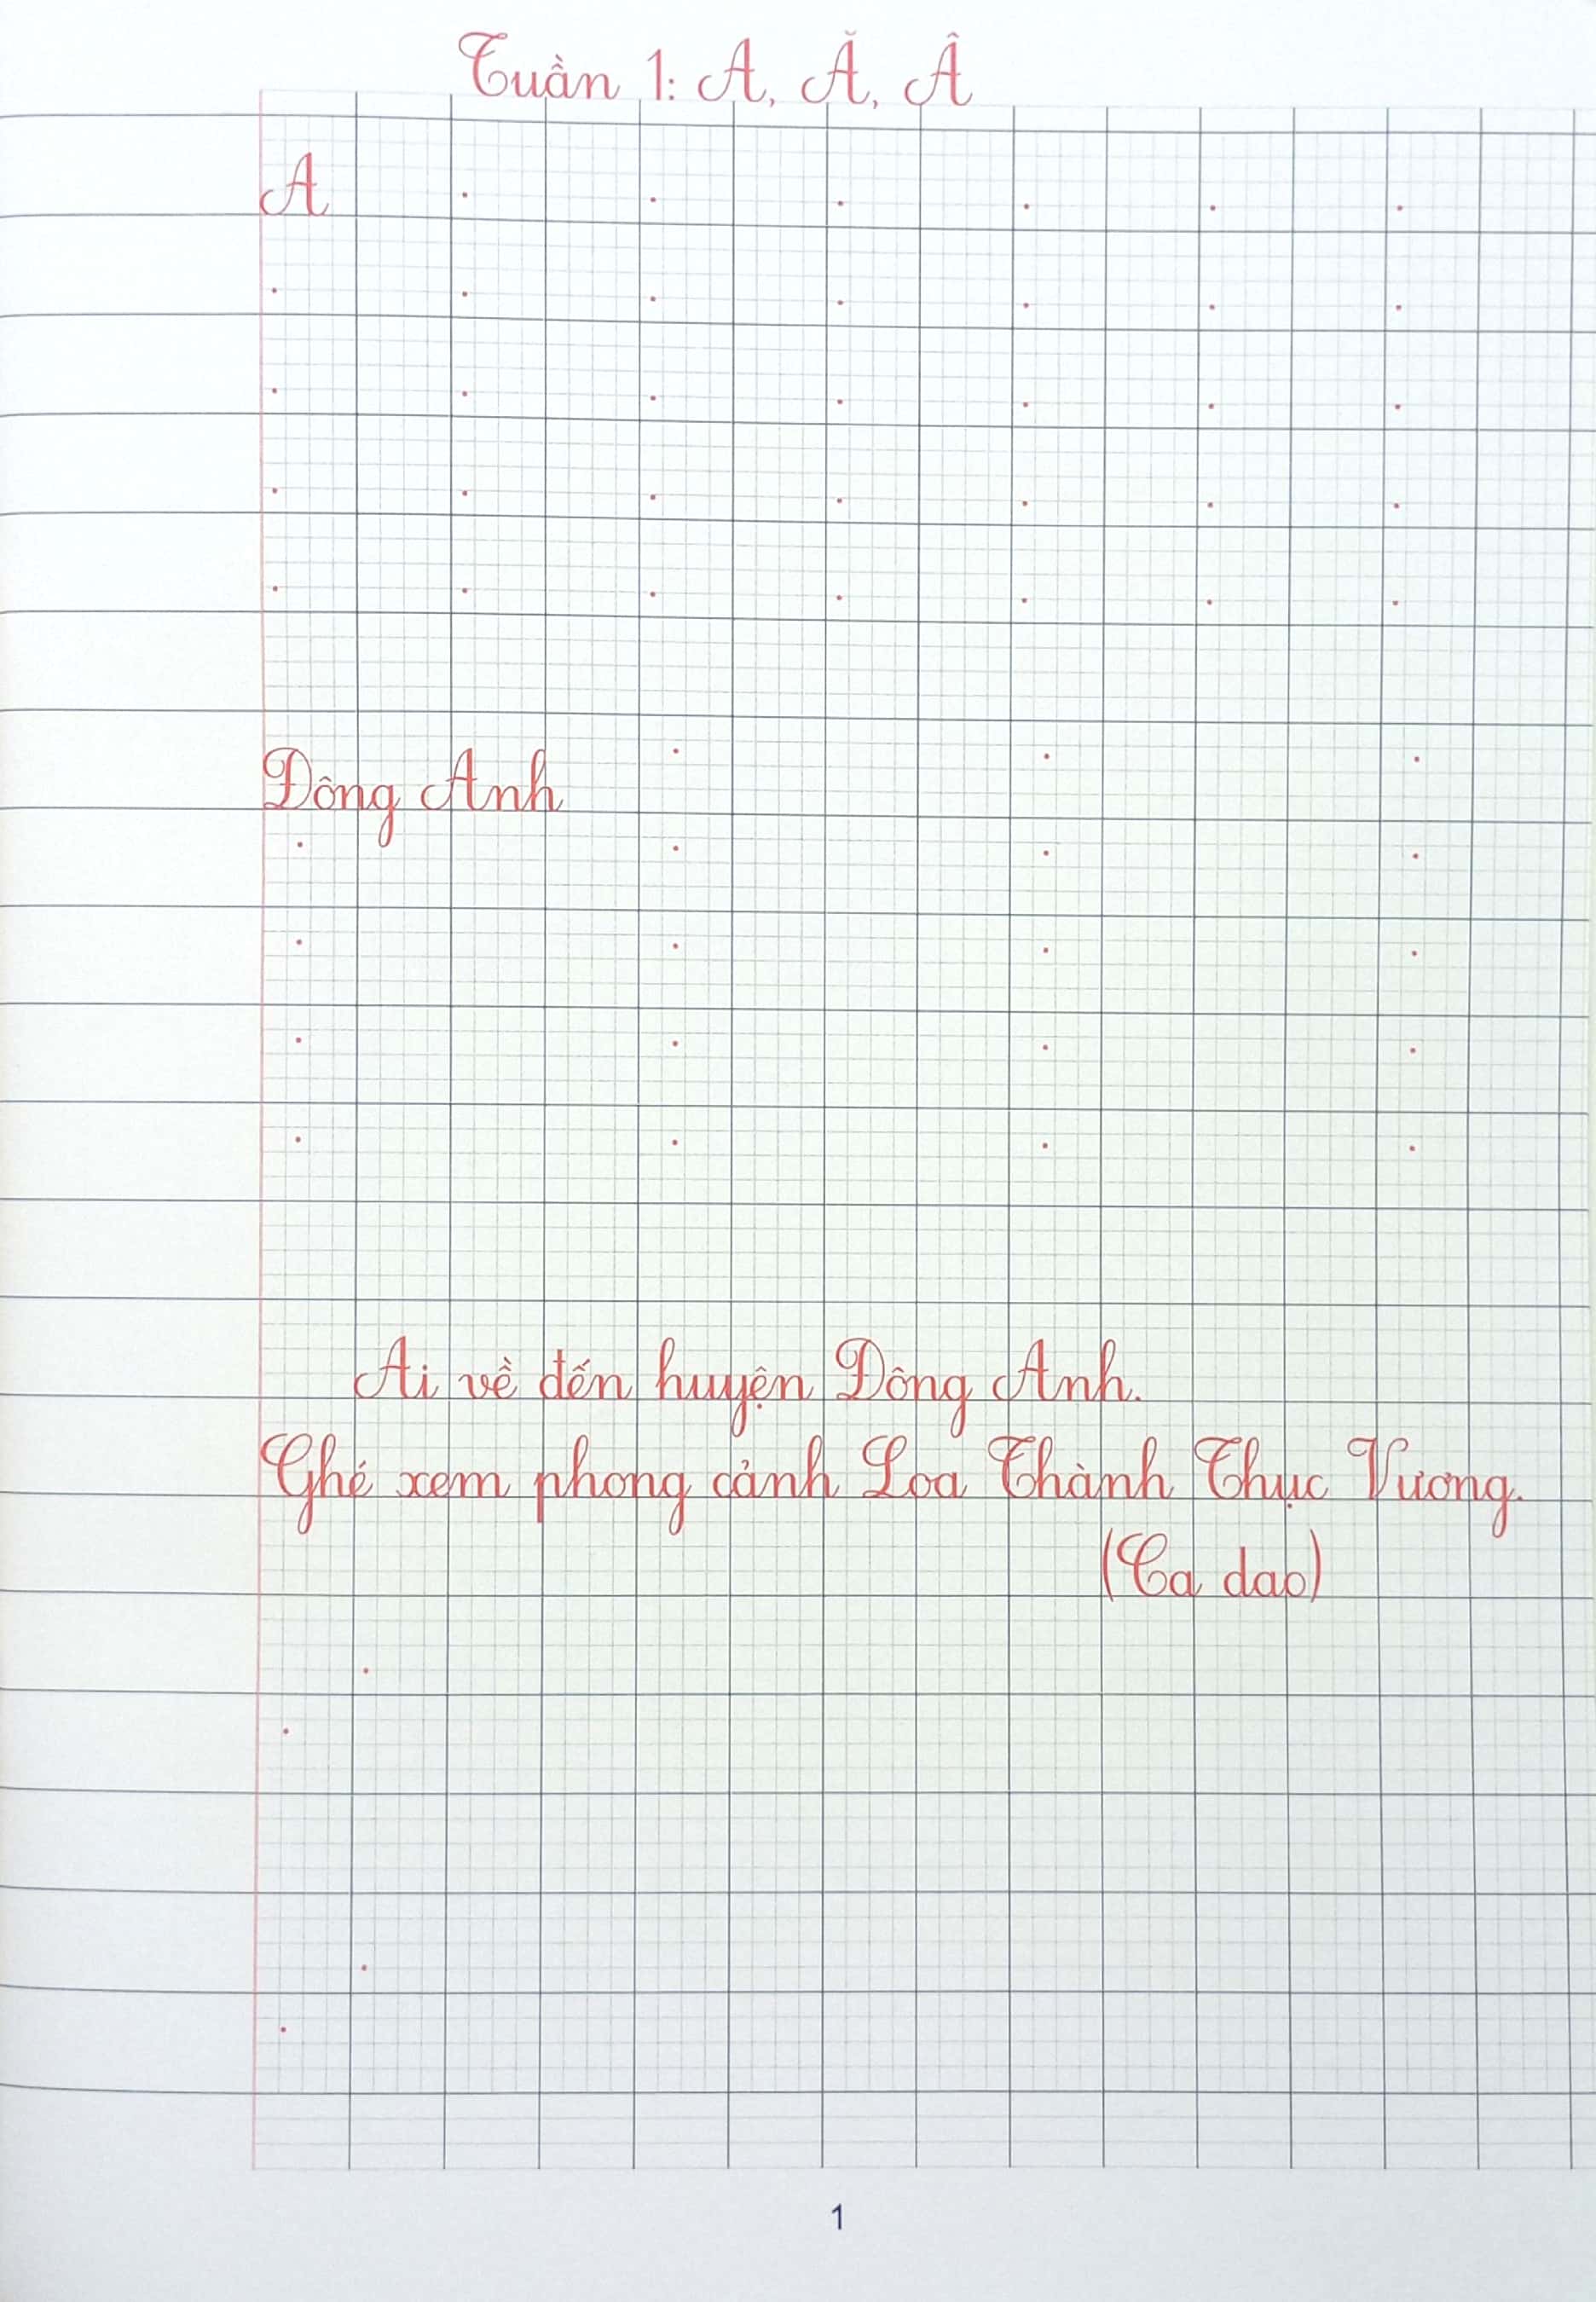 Tuần 1: A, Ă, Â
A
Đông Anh
Ai về đến huyện Đông Anh.
Ghé xem phong cảnh Loa Thành Thục Vương.
(Ca dao)
1